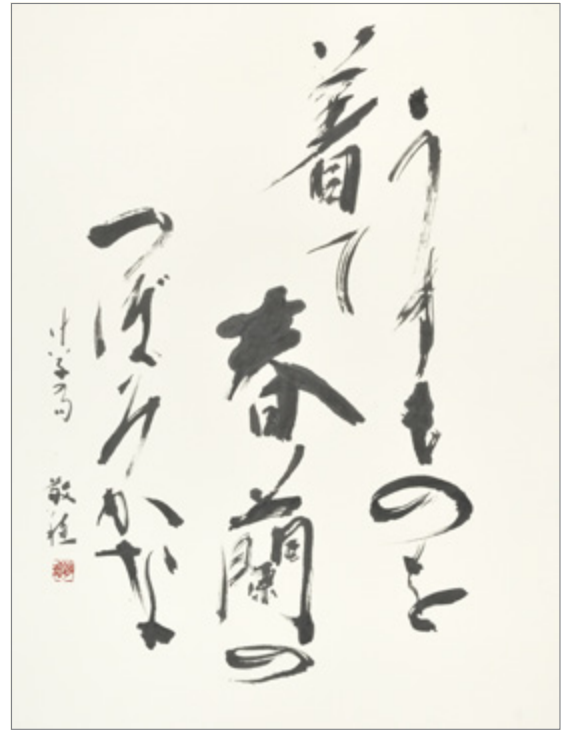 うすものを
着て
春蘭の
つぼみかな